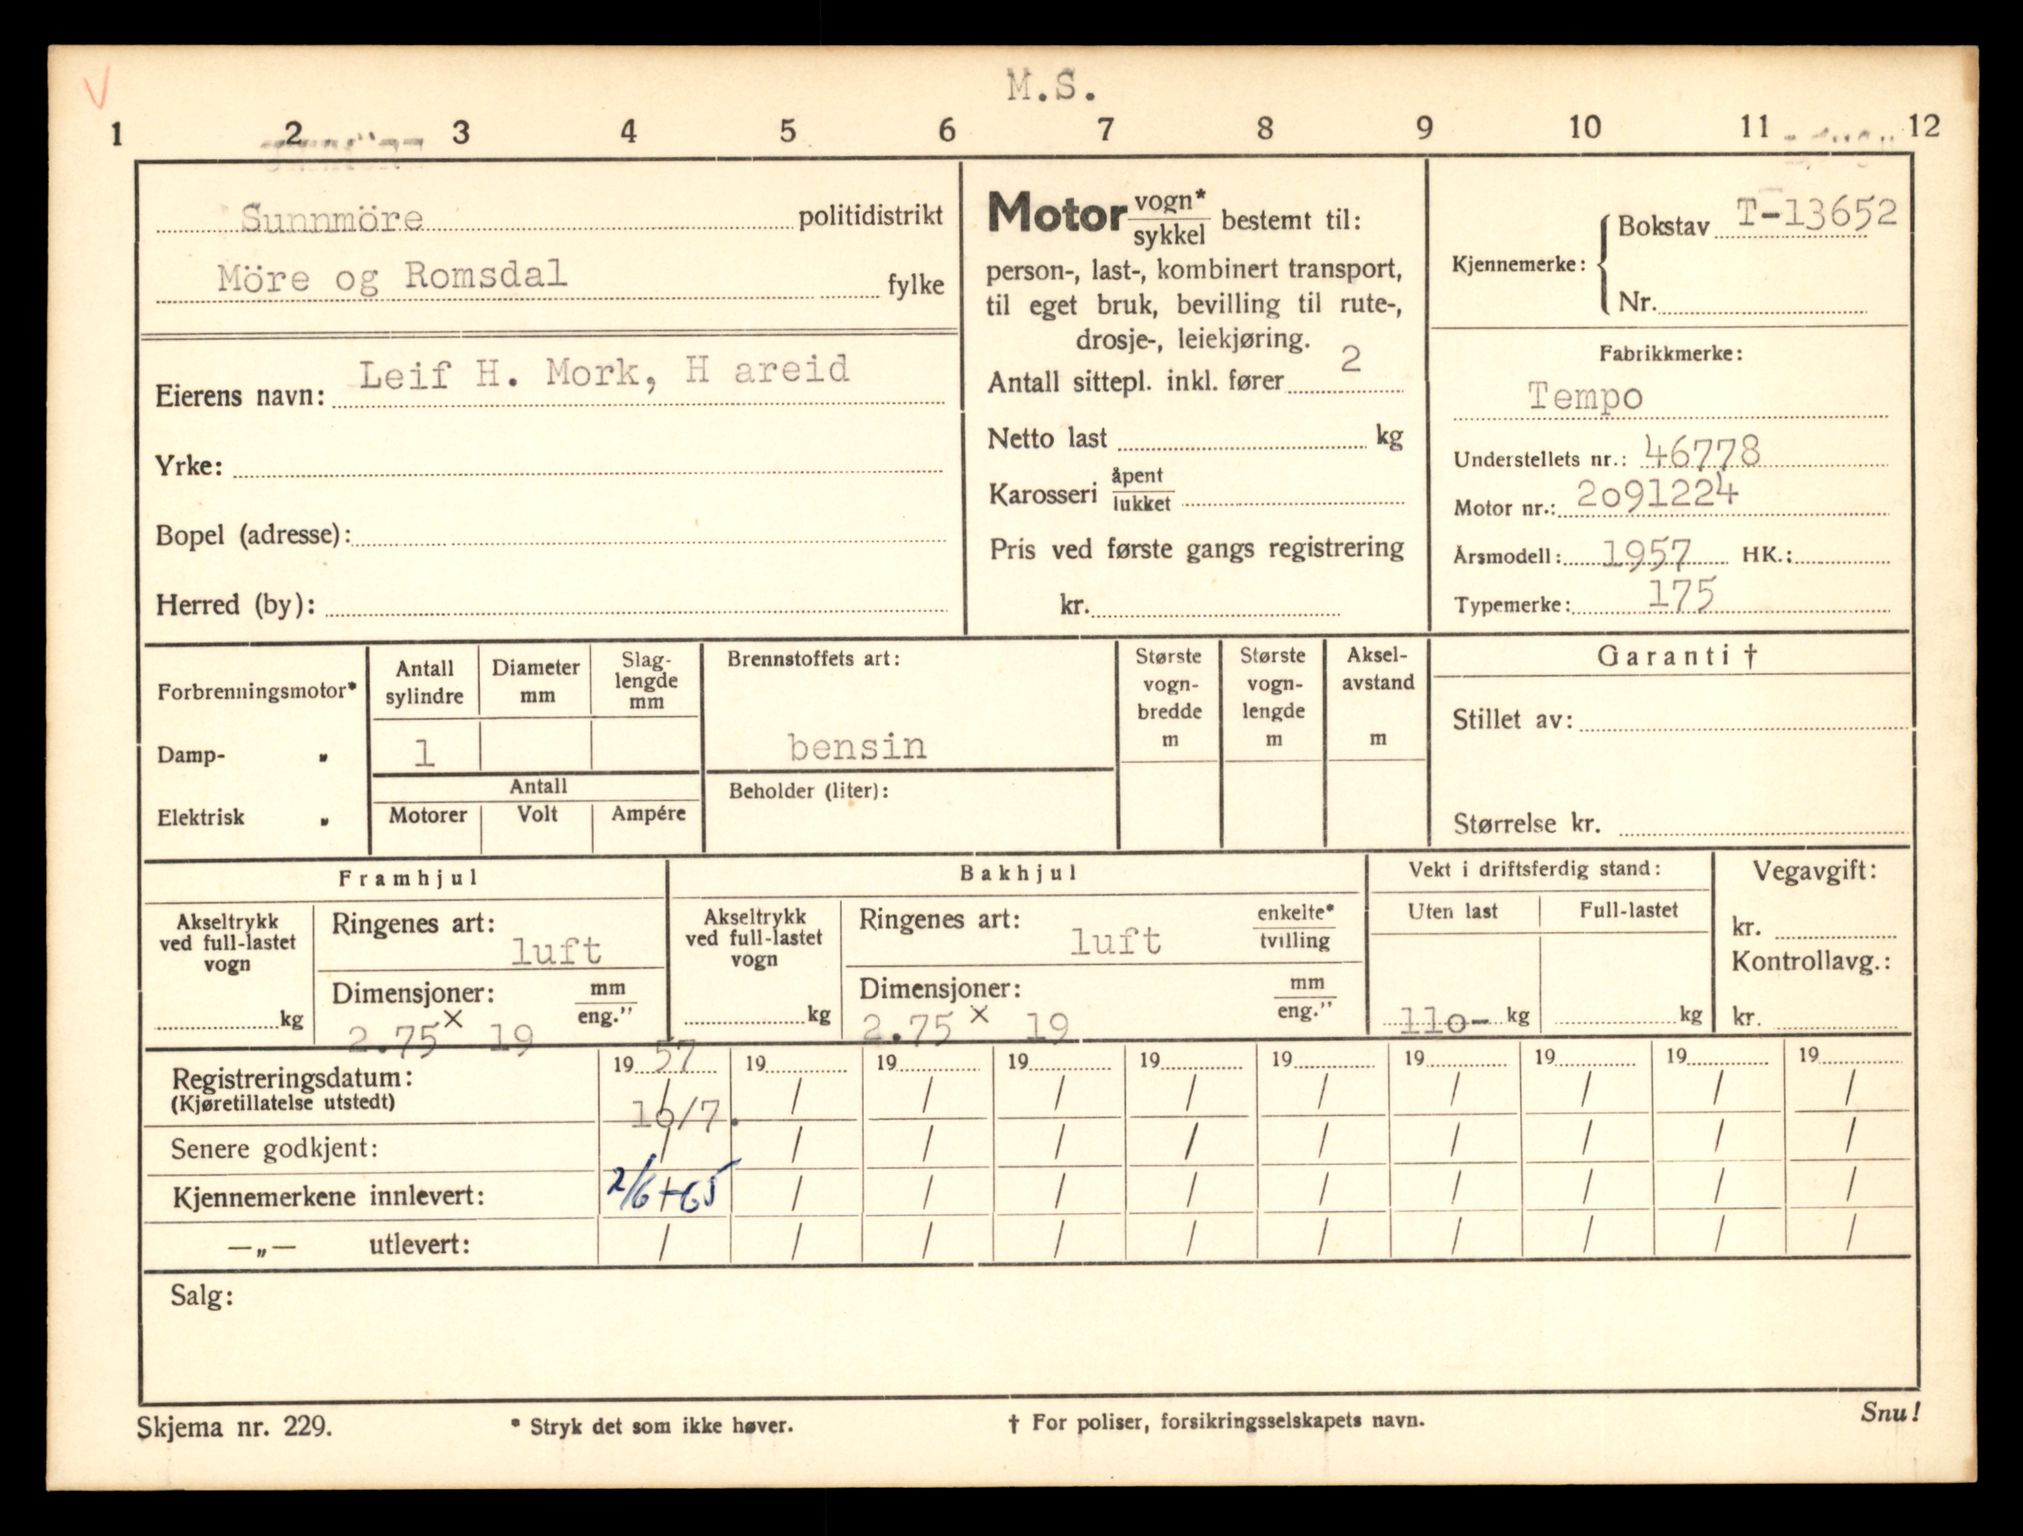 V
M.S.
1 2 3 4 5 6 7 8 9 10 11 12
Sunnmöre politidistrikt
Möre og Romsdal fylke
Eierens navn: Leif H. Mork, H areid
Yrke:
Bopel (adresse):
Herred (by):
Motor vogn* / sykkel bestemt til:
person-, last-, kombinert transport,
til eget bruk, bevilling til rute-,
drosje-, leiekjøring.
Antall sittepl. inkl. fører 2
Netto last kg
Karosseri åpent / lukket
Pris ved første gangs registrering
kr.
Kjennemerke: Bokstav T-13652
Nr.
Fabrikkmerke:
Tempo
Understellets nr.: 46778
Motor nr.: 2o91224
Årsmodell: 1957 HK.:
Typemerke: 175
Forbrenningsmotor*
Damp- „
Elektrisk „
Antall sylindre
Diameter mm
Slag-lengde mm
1
Antall
Motorer Volt Ampére
Brennstoffets art:
bensin
Beholder (liter):
Største vogn-bredde m
Største vogn-lengde m
Aksel-avstand m
Garanti †
Stillet av:
Størrelse kr.
Framhjul
Akseltrykk ved full-lastet vogn
kg
Ringenes art:
luft
Dimensjoner: mm / eng."
2.75 x 19
Bakhjul
Akseltrykk ved full-lastet vogn
kg
Ringenes art: enkelte* / tvilling
luft
Dimensjoner: mm / eng."
2.75 x 19
Vekt i driftsferdig stand:
Uten last Full-lastet
11o- kg kg
Vegavgift:
kr.
Kontrollavg.:
kr.
19 57 19 19 19 19 19 19 19 19 19
Registreringsdatum:
(Kjøretillatelse utstedt) 1o/7.
Senere godkjent:
Kjennemerkene innlevert: 2/6-65
—„— utlevert:
Salg:
Skjema nr. 229. * Stryk det som ikke høver. † For poliser, forsikringsselskapets navn. Snu!